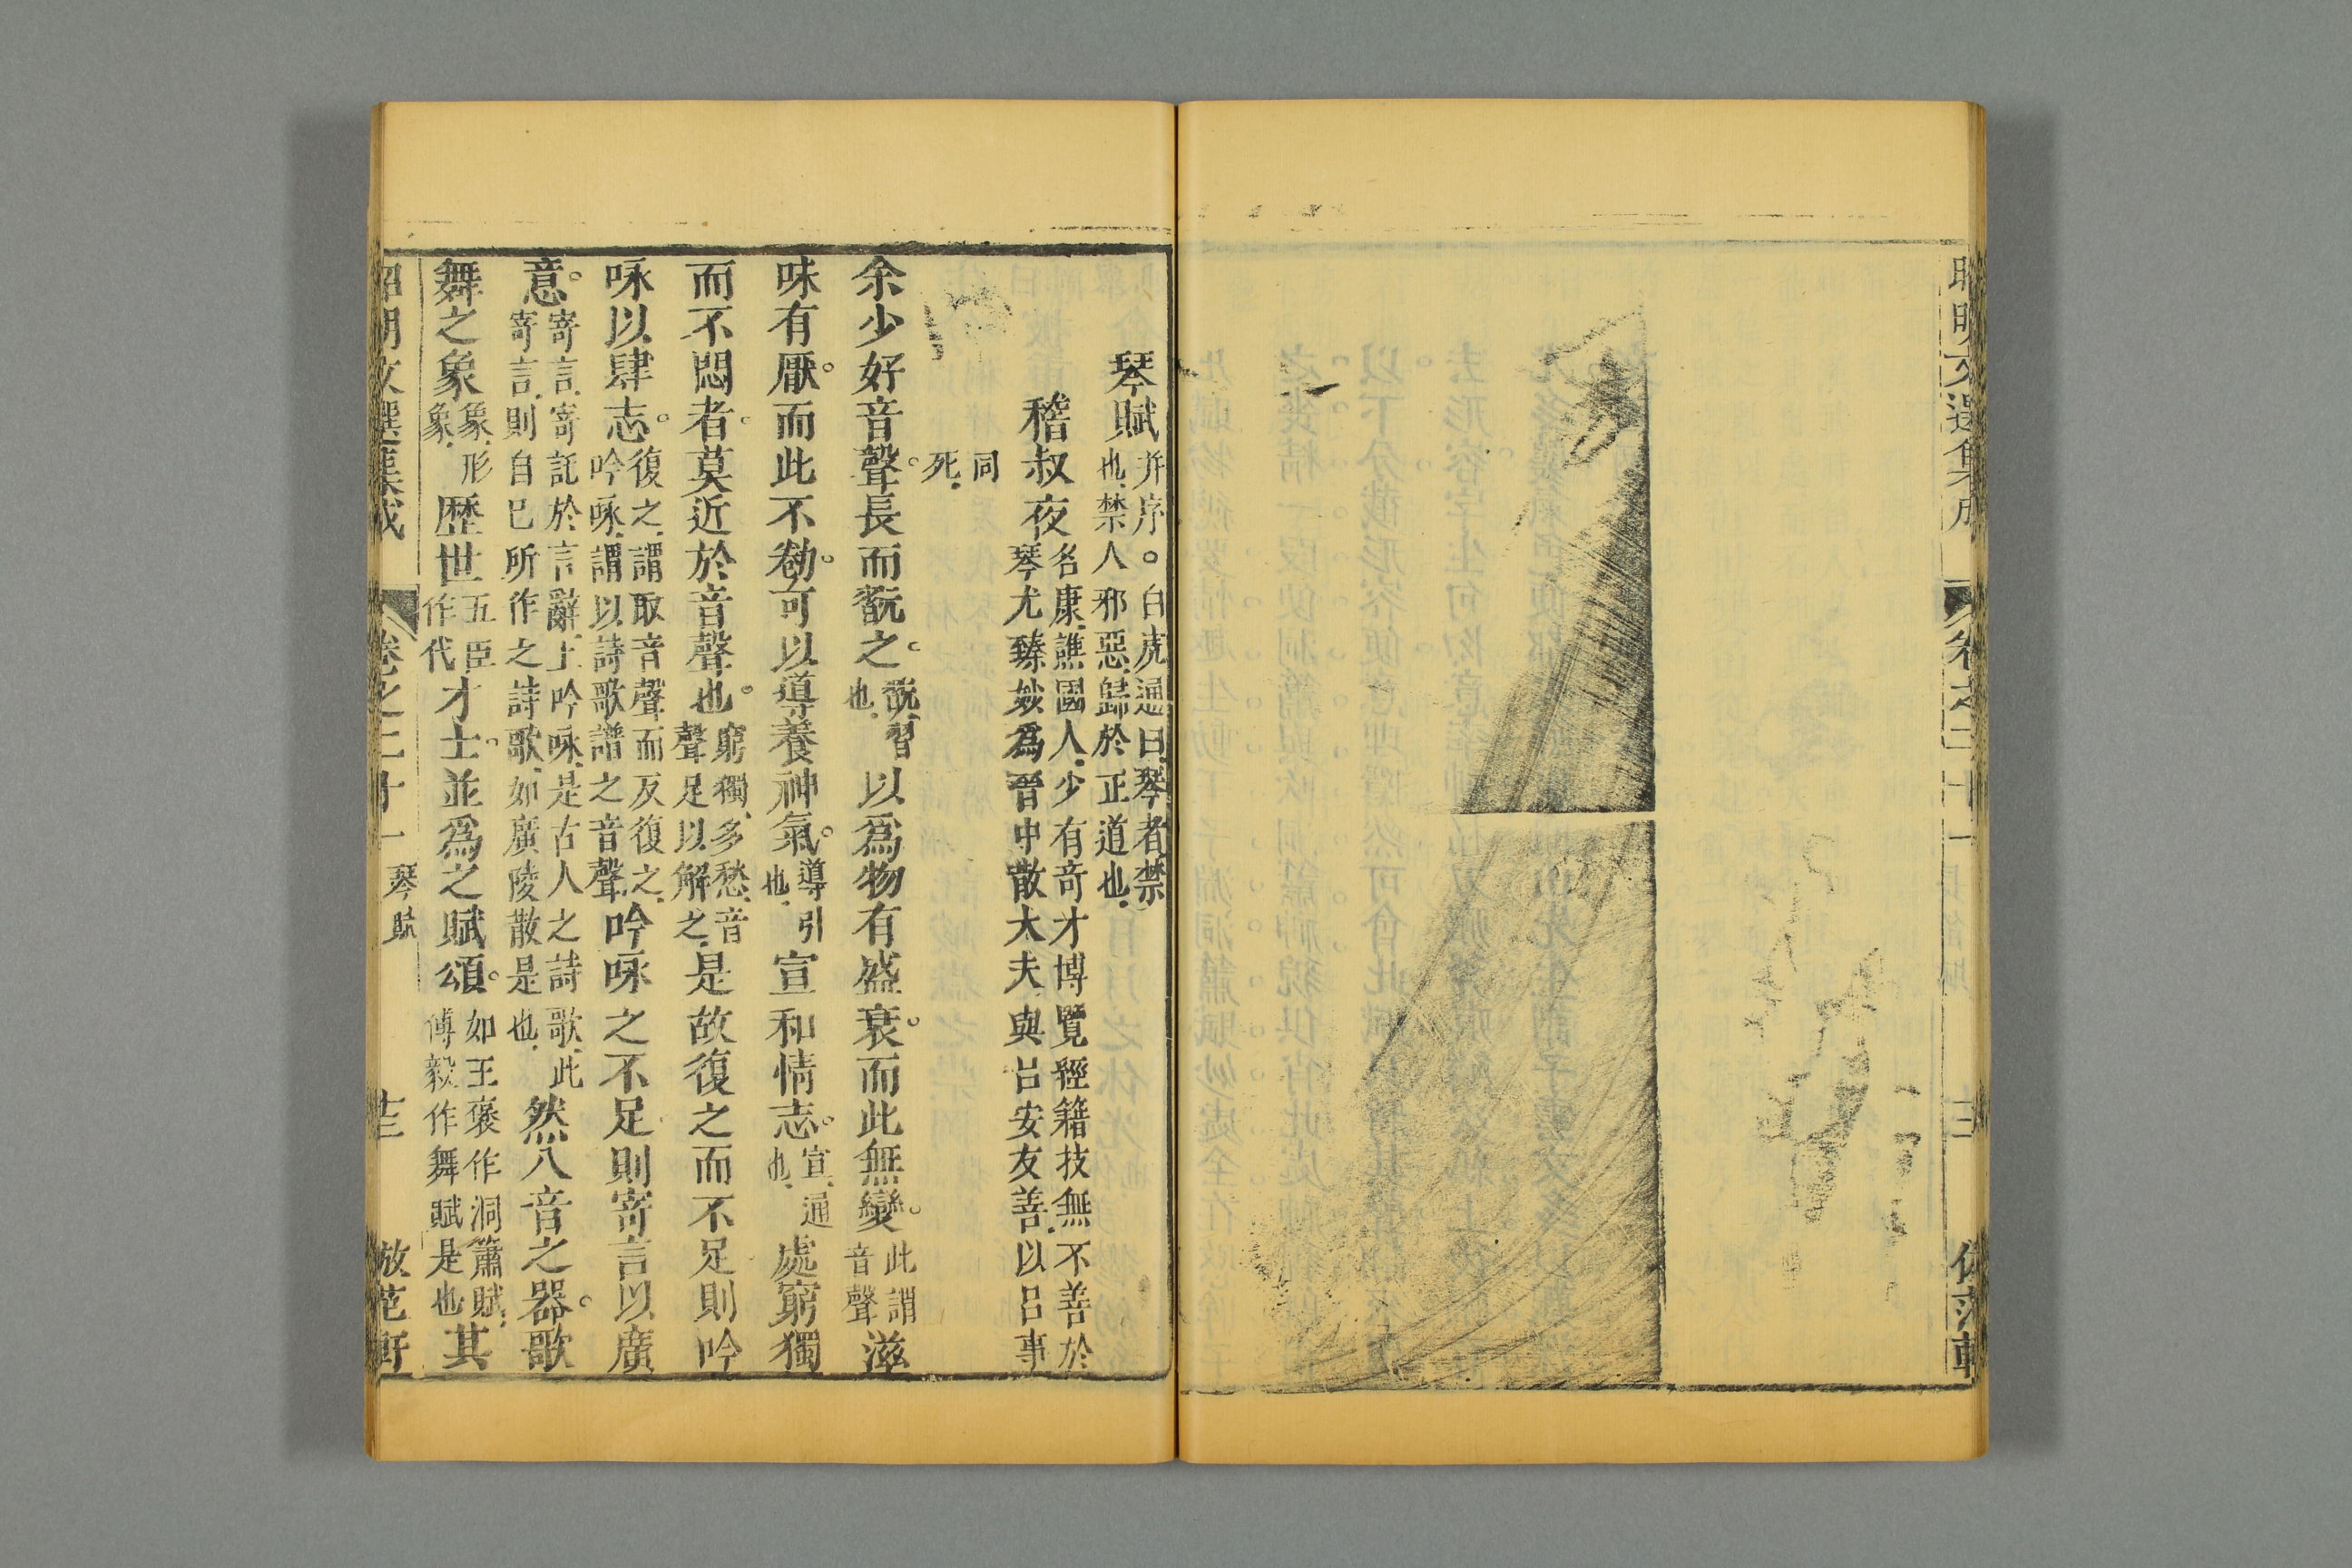 昭明文選集成 卷之二十一
琴賦 并序。白虎通曰琴者禁也禁人邪惡歸於正道也
嵇叔夜 名康譙國人少有奇才博覽經籍技無不善於琴尤臻妙爲晉中散大夫與呂安友善以呂事
同死
余少好音聲。長而翫之。翫習也以爲物有盛衰。而此無變。此謂音聲滋
味有厭。而此不勌。可以導養神氣。導引也宣和情志。宣通也處窮獨
而不悶者。莫近於音聲也。窮獨多愁音聲足以解之是故復之而不足則吟
咏以肆志。復之謂取音聲而反復之吟咏謂以詩歌譜之音聲吟咏之不足則寄言以廣
意。寄言寄託於言辭上吟咏是古人之詩歌此寄言則自已所作之詩歌如廣陵散是也然八音之器。歌
舞之象象形象歷世五臣作代才士。並爲之賦頌。如王褒作洞簫賦傅毅作舞賦是也其
昭明文選集成 卷之二十一 琴賦 放范軒